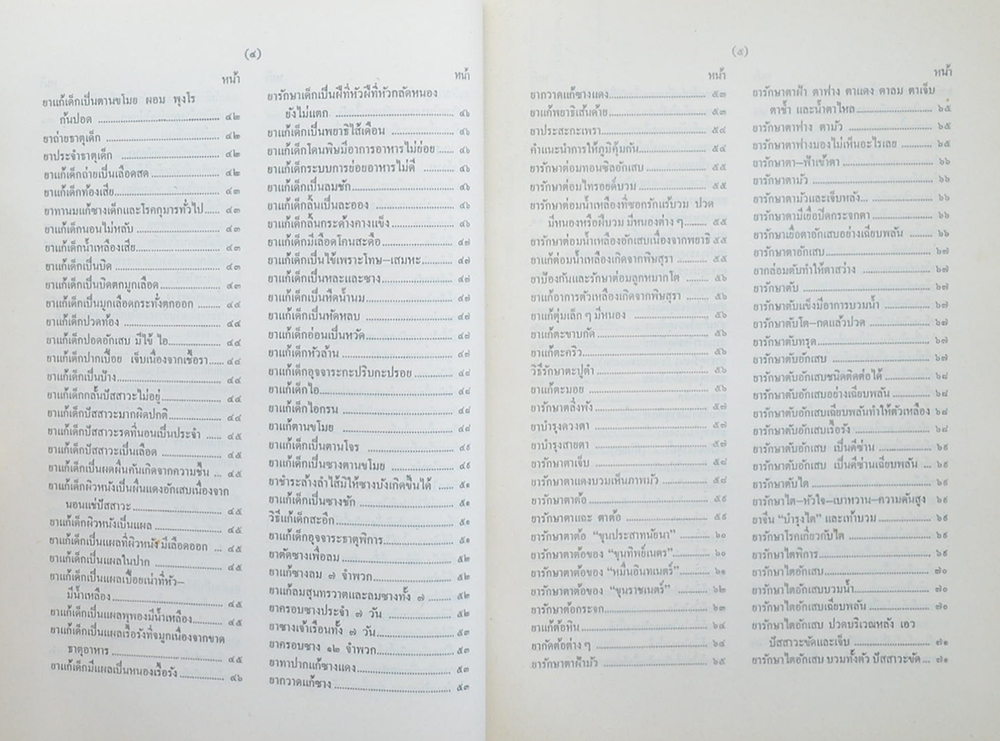 (๔)
หน้า
ยาแก้เด็กเป็นตานขโมย ผอม พุงโร
ก้นปอด ๔๒
ยาถ่ายธาตุเด็ก ๔๒
ยาประจำธาตุเด็ก ๔๒
ยาแก้เด็กถ่ายเป็นเลือดสด ๔๒
ยาแก้เด็กท้องเสีย ๔๓
ยาทานมแก้ซางเด็กและโรคกุมารทั่วไป ๔๓
ยาแก้เด็กนอนไม่หลับ ๔๓
ยาแก้เด็กน้ำเหลืองเสีย ๔๓
ยาแก้เด็กเป็นบิด ๔๓
ยาแก้เด็กเป็นบิดตกมูกเลือด ๔๓
ยาแก้เด็กเป็นมูกเลือดกระทั่งตกออก ๔๔
ยาแก้เด็กปวดท้อง ๔๔
ยาแก้เด็กปอดอักเสบ มีไข้ ไอ ๔๔
ยาแก้เด็กปากเปื่อย เจ็บเนื่องจากเชื้อรา ๔๔
ยาแก้เด็กเป็นป้าง ๔๔
ยาแก้เด็กกลั้นปัสสาวะไม่อยู่ ๔๔
ยาแก้เด็กปัสสาวะมากผิดปกติ ๔๔
ยาแก้เด็กปัสสาวะรดที่นอนเป็นประจำ ๔๕
ยาแก้เด็กปัสสาวะเป็นเลือด ๔๕
ยาแก้เด็กเป็นผดผื่นคันเกิดจากความชื้น ๔๕
ยาแก้เด็กผิวหนังเป็นผื่นแดงอักเสบเนื่องจาก
นอนแช่ปัสสาวะ ๔๕
ยาแก้เด็กผิวหนังเป็นแผล ๔๕
ยาแก้เด็กเป็นแผลที่ผิวหนังมีเลือดออก ๔๕
ยาแก้เด็กเป็นแผลในปาก ๔๕
ยาแก้เด็กเป็นแผลเปื่อยเน่าที่หัว–
มีน้ำเหลือง ๔๕
ยาแก้เด็กเป็นแผลพุพองมีน้ำเหลือง ๔๕
ยาแก้เด็กเป็นแผลเรื้อรังที่จมูกเนื่องจากขาด
ธาตุอาหาร ๔๕
ยาแก้เด็กมีแผลเป็นหนองเรื้อรัง ๔๖
หน้า
ยารักษาเด็กเป็นฝีที่หัวฝีที่หัวกลัดหนอง
ยังไม่แตก ๔๖
ยาแก้เด็กเป็นพยาธิไส้เดือน ๔๖
ยาแก้เด็กโดนพิษมีอาการอาหารไม่ย่อย ๔๖
ยาแก้เด็กระบบการย่อยอาหารไม่ดี ๔๖
ยาแก้เด็กเป็นลมชัก ๔๖
ยาแก้เด็กลิ้นเป็นละออง ๔๖
ยาแก้เด็กลิ้นกระด้างคางแข็ง ๔๖
ยาแก้เด็กมีเลือดไหลสะดือ ๔๗
ยาแก้เด็กเป็นไข้เพราะโทษ–เสมหะ ๔๗
ยาแก้เด็กเป็นหละและซาง ๔๗
ยาแก้เด็กเป็นหืดน้ำนม ๔๗
ยาแก้เด็กเป็นหัดหลบ ๔๗
ยาแก้เด็กอ่อนเป็นหวัด ๔๗
ยาแก้เด็กหัวล้าน ๔๗
ยาแก้เด็กอุจจาระกะปริบกะปรอย ๔๘
ยาแก้เด็กไอ ๔๘
ยาแก้เด็กไอกรน ๔๘
ยาแก้ตานขโมย ๔๘
ยาแก้เด็กเป็นตานโจร ๔๙
ยาแก้เด็กเป็นซางตานขโมย ๔๙
ยาชำระล้างลำไส้มิให้ซางบังเกิดขึ้นได้ ๕๑
ยาแก้เด็กเป็นซางชัก ๕๑
วิธีแก้เด็กสะอึก ๕๑
ยาแก้เด็กอุจจาระธาตุพิการ ๕๑
ยาตัดซางเพื่อลม ๕๒
ยาแก้ซางลม ๗ จำพวก ๕๒
ยาแก้ลมสุนทรวาตและลมซางทั้ง ๗ ๕๒
ยาครอบซางประจำ ๗ วัน ๕๒
ยาซางเจ้าเรือนทั้ง ๗ วัน ๕๓
ยาครอบซาง ๑๒ จำพวก ๕๓
ยาทาปากแก้ซางแดง ๕๓
ยากวาดแก้ซาง ๕๓
(๕)
หน้า
ยากวาดแก้ซางแดง ๕๓
ยาแก้พยาธิเส้นด้าย ๕๔
ยาประสะกะเพรา ๕๔
คำแนะนำการให้ภูมิคุ้มกัน ๕๔
ยารักษาต่อมทอนซิลอักเสบ ๕๕
ยารักษาต่อมไทรอยด์บวม ๕๕
ยารักษาต่อมน้ำเหลืองที่ซอกรักแร้บวม ปวด
มีหนองหรือฝีบวม มีหนองต่าง ๆ ๕๕
ยารักษาต่อมน้ำเหลืองอักเสบเนื่องจากพยาธิ ๕๕
ยาแก้ต่อมน้ำเหลืองเกิดจากพิษสุรา ๕๕
ยาป้องกันและรักษาต่อมลูกหมากโต ๕๖
ยาแก้อาการตัวเหลืองเกิดจากพิษสุรา ๕๖
ยาแก้ตุ่มเล็ก ๆ มีหนอง ๕๖
ยาแก้ตะขาบกัด ๕๖
ยาแก้ตะคริว ๕๖
วิธีรักษาตะปูตำ ๕๖
ยาแก้ตะมอย ๕๖
ยารักษาตลิ่งพัง ๕๗
ยาบำรุงดวงตา ๕๗
ยาบำรุงสายตา ๕๗
ยารักษาตาเจ็บ ๕๘
ยารักษาตาแดงบวมเห็นภาพมัว ๕๘
ยารักษาตาต้อ ๕๙
ยารักษาตาแฉะ ตาต้อ ๕๙
ยารักษาตาต้อ “ขุนประสาทนัยนา” ๖๐
ยารักษาตาต้อของ “ขุนทิพย์เนตร” ๖๐
ยารักษาตาต้อของ “หมื่นอินทเนตร์” ๖๑
ยารักษาตาต้อของ “ขุนราชเนตร์” ๖๒
ยารักษาต้อกระจก ๖๓
ยาแก้ต้อหิน ๖๔
ยากัดต้อต่าง ๆ ๖๔
ยารักษาตาฝ้ามัว ๖๕
หน้า
ยารักษาตาฝ้า ตาฟาง ตาแดง ตาลม ตาเจ็บ
ตาช้ำ และน้ำตาไหล ๖๕
ยารักษาตาฟาง ตามัว ๖๕
ยารักษาตาฟางมองไม่เห็นอะไรเลย ๖๕
ยารักษาตา–ฟ้าเข้าตา ๖๖
ยารักษาตามัว ๖๖
ยารักษาตามัวและเจ็บหลัง ๖๖
ยารักษาตามีเยื่อปิดกระจกตา ๖๖
ยารักษาเยื่อตาอักเสบอย่างเฉียบพลัน ๖๖
ยารักษาตาอักเสบ ๖๗
ยากล่อมตับทำให้ตาสว่าง ๖๗
ยารักษาตับ ๖๗
ยารักษาตับแข็งมีอาการบวมน้ำ ๖๗
ยารักษาตับโต–กดแล้วปวด ๖๗
ยารักษาตับทรุด ๖๗
ยารักษาตับอักเสบ ๖๗
ยารักษาตับอักเสบชนิดติดต่อได้ ๖๘
ยารักษาตับอักเสบอย่างเฉียบพลัน ๖๘
ยารักษาตับอักเสบเฉียบพลันทำให้ตัวเหลือง ๖๘
ยารักษาตับอักเสบเรื้อรัง ๖๘
ยารักษาตับอักเสบ เป็นดีซ่าน ๖๙
ยารักษาตับอักเสบ เป็นดีซ่านเฉียบพลัน ๖๙
ยารักษาตับไต ๖๙
ยารักษาไต–หัวใจ–เบาหวาน–ความดันสูง ๖๙
ยาจีน “บำรุงไต” และเท้าบวม ๖๙
ยารักษาโรคเกี่ยวกับไต ๖๙
ยารักษาไตพิการ ๖๙
ยารักษาไตอักเสบ ๗๐
ยารักษาไตอักเสบบวมน้ำ ๗๐
ยารักษาไตอักเสบเฉียบพลัน ๗๑
ยารักษาไตอักเสบ ปวดบริเวณหลัง เอว
ปัสสาวะขัดและเจ็บ ๗๑
ยารักษาไตอักเสบ บวมทั้งตัว ปัสสาวะขัด ๗๑